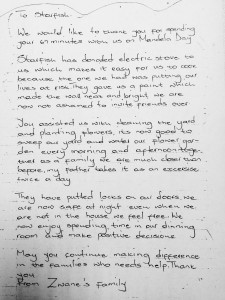 To Starfish
We would like to thank you for spending
your 67 minutes with us on Mandela Day
Starfish has donated electric stove to
us which makes it easy for us to cook
because the one we had was putting our
lives at risk. They gave us a paint which
made the wall neat and bright we are
now not ashamed to invite friends over
You assisted us with cleaning the yard
and planting flowers, its now good to
sweep our yard and water our flower gar-
den every morning and afternoon toge-
ther as a family we are much closer than
before, my father takes it as an excersise
twice a day
They have putted locks on our doors we
are now safe at night even when we
are not in the house we feel free. We
now enjoy spending time in our dinning
room and make positive decisions
May you continue making difference
in the families who needs help. Thank
you
From Zwane's family